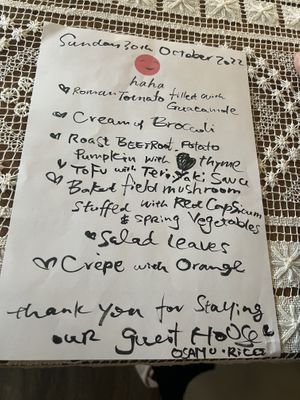 Sunday 30th October 2022
haha
Roman Tomato filled with
Guacamole
Creamy Broccoli
Roast BEETRoot, Potato
Pumpkin with thyme
ToFu with Teriyaki Sauce
Baked field mushroom
Stuffed with Red Capsicum
& Spring Vegetables
Salad leaves
Crêpe with Orange
thank you for Staying
our guest House
OSAMU・RICO